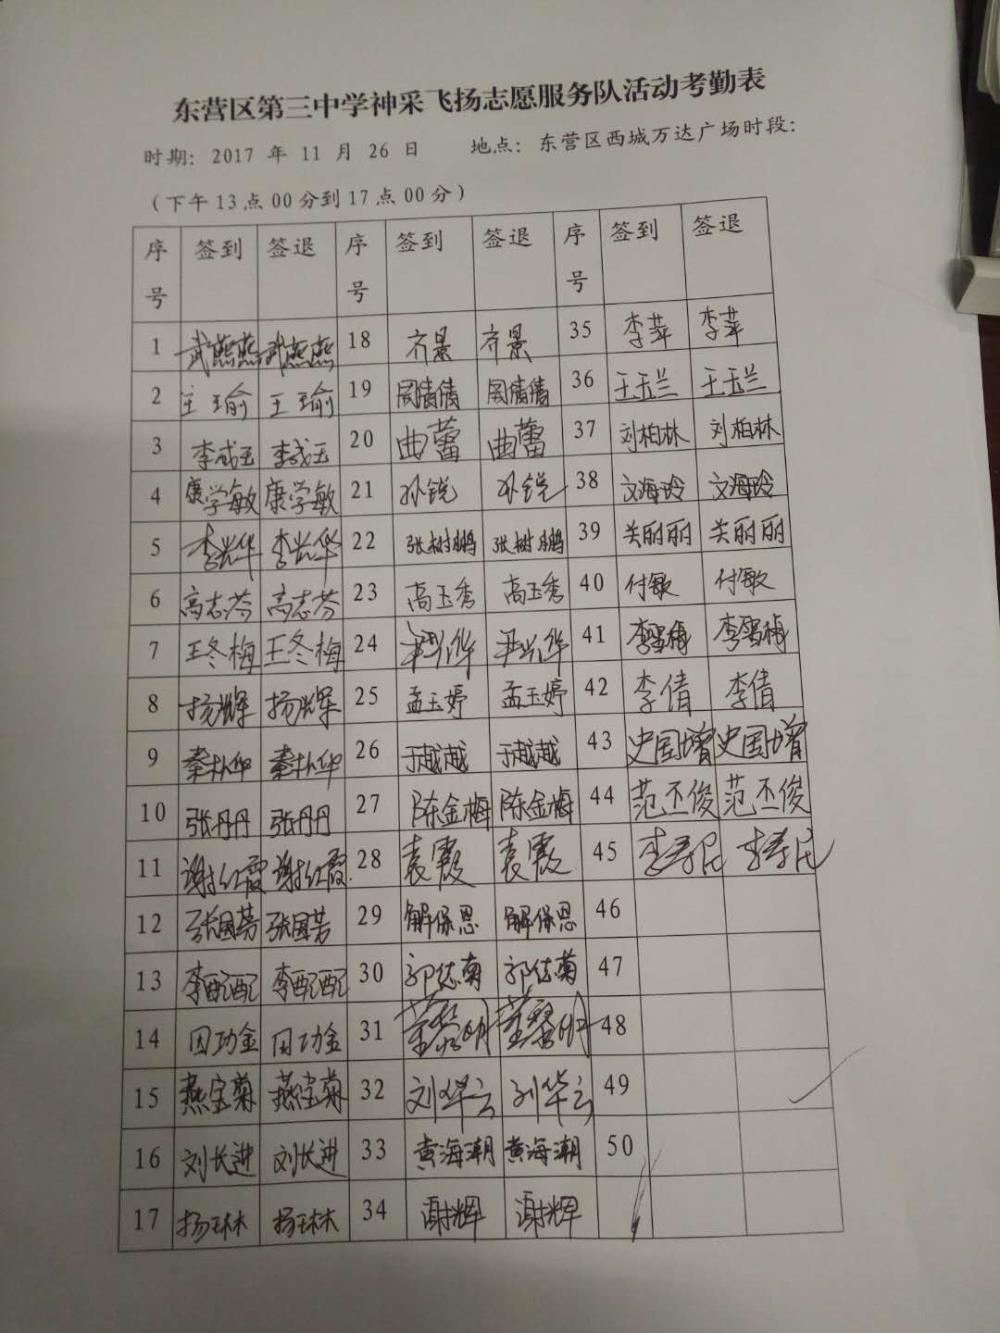 东营区第三中学神采飞扬志愿服务队活动考勤表
时期: 2017 年 11 月 26 日 地点: 东营区西城万达广场时段:
（下午13点00分到17点00分）
序号 签到 签退 序号 签到 签退 序号 签到 签退
1 武燕燕 武燕燕 18 齐景 齐景 35 李苹 李苹
2 王瑜 王瑜 19 周倩倩 周倩倩 36 王玉兰 王玉兰
3 李成玉 李成玉 20 曲蕾 曲蕾 37 刘柏林 刘柏林
4 康学敏 康学敏 21 孙锐 孙锐 38 文海玲 文海玲
5 李兴华 李兴华 22 张树鹏 张树鹏 39 关丽丽 关丽丽
6 高志芬 高志芬 23 高玉秀 高玉秀 40 付敏 付敏
7 王冬梅 王冬梅 24 尹兴华 尹兴华 41 李雪梅 李雪梅
8 杨辉 杨辉 25 孟玉婷 孟玉婷 42 李倩 李倩
9 26 于越越 于越越 43 史国增 史国增
10 张丹丹 张丹丹 27 陈金梅 陈金梅 44 范丕俊 范丕俊
11 谢红霞 谢红霞 28 袁霞 袁霞 45 李寿民 李寿民
12 张国芳 张国芳 29 解保恩 解保恩 46
13 李配配 李配配 30 郭志菊 郭志菊 47
14 田功金 田功金 31 董黎明 董黎明 48
15 燕宝菊 燕宝菊 32 刘华云 刘华云 49
16 刘长进 刘长进 33 黄海潮 黄海潮 50
17 杨琳 杨琳 34 谢辉 谢辉